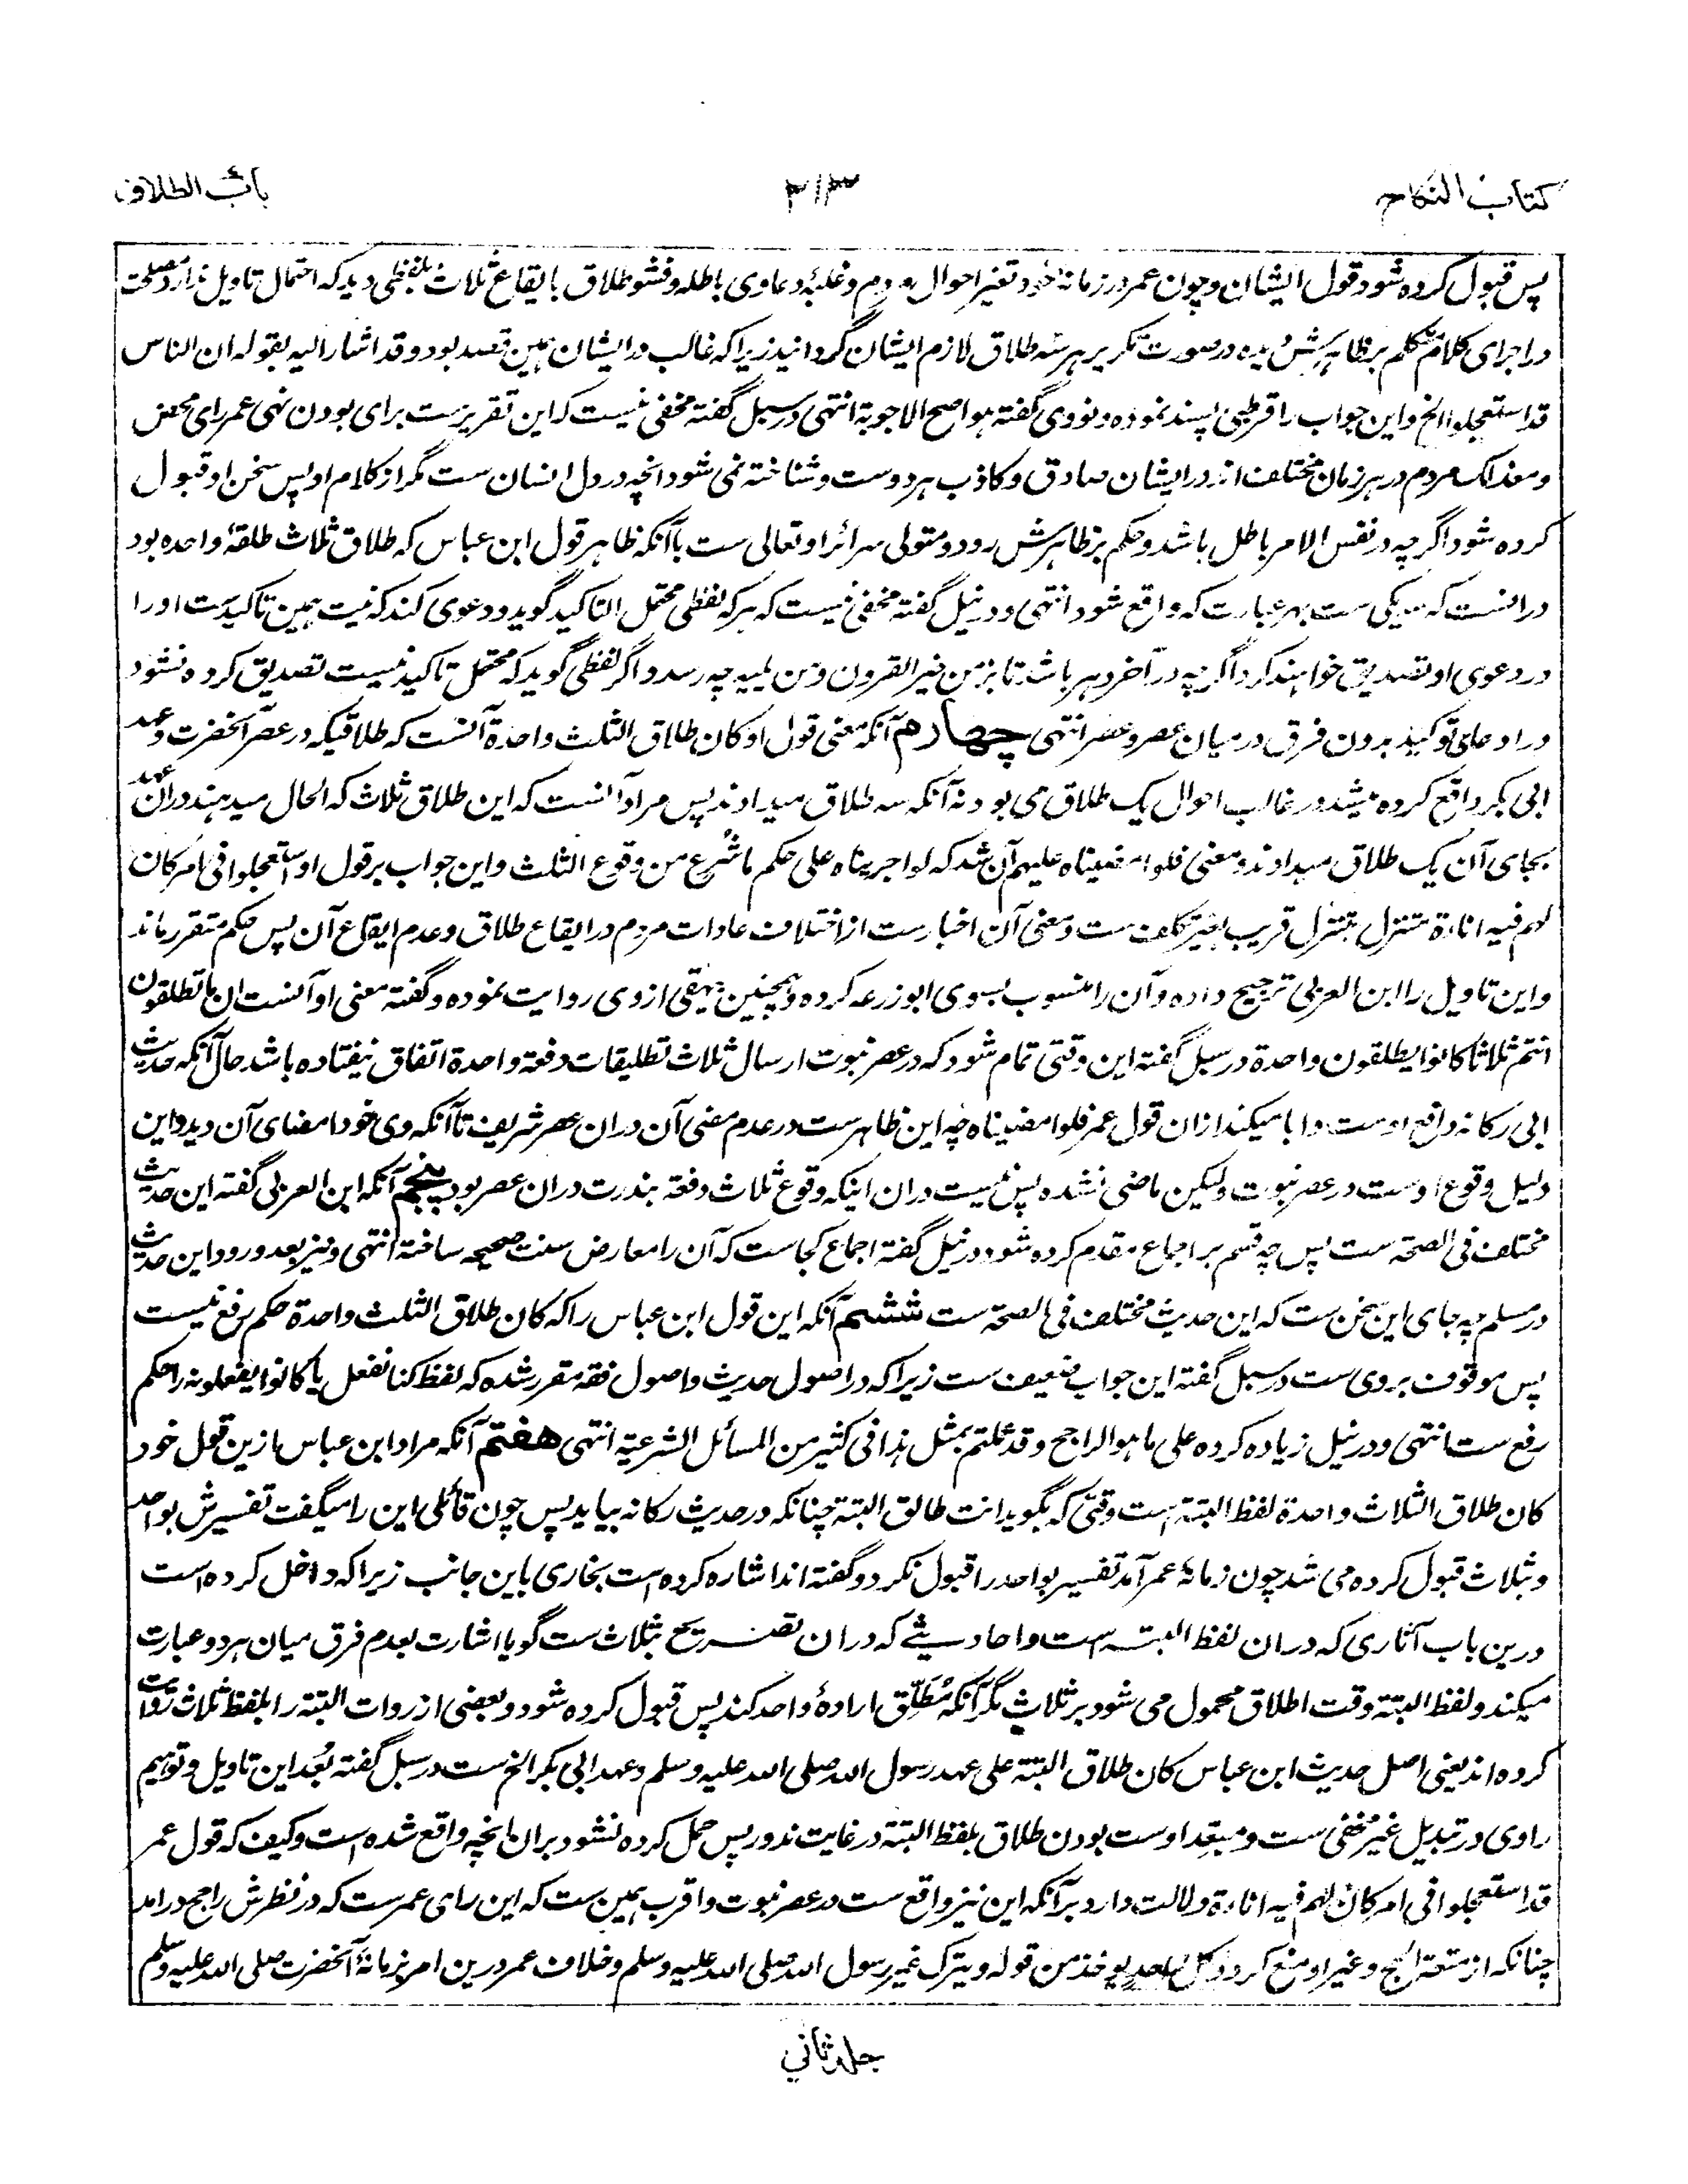 کتاب النکاح
۳۱۳
باب الطلاق
پس قبول کرده شود قول ایشان و چون عمر در زمانهٔ خود تغیر احوال مردم و غلبهٔ دعاوی باطله و فشو طلاق بایقاع ثلاث بلفظی دید که احتمال تاویل ندارد مصلحت
در اجرای کلام متکلم بر ظاهرش دیده در صورت تکریر هر سه طلاق لازم ایشان گردانید زیرا که غالب در ایشان همین قصد بود و قد اشار الیه بقوله ان الناس
قد استعجلوا الخ و این جواب را قرطبی پسند نموده و نووی گفته هو اصح الاجوبة انتهی در سبل گفته مخفی نیست که این تقریرست برای بودن نهی عمر رای محض
و معذلک مردم در هر زمان مختلف اند در ایشان صادق و کاذب هر دوست و شناخته نمی شود انچه در دل انسان ست مگر از کلام او پس سخن او قبول
کرده شود اگرچه در نفس الامر باطل باشد و حکم بر ظاهرش رود و متولی سرائر او تعالی ست باآنکه ظاهر قول ابن عباس که طلاق ثلاث طلقهٔ واحده بود
درانست که سه یکی ست بهر عبارت که واقع شود انتهی و در نیل گفته مخفی نیست که هر که لفظی محتمل التاکید گوید و دعوی کند که نیت همین تاکیدست او را
در دعوی او تصدیق خواهند کرد اگرچه در آخر دهر باشد تا بزمن خیر القرون و من یلیهم چه رسد و اگر لفظی گوید که محتمل تاکید نیست تصدیق کرده نشود
در ادعای توکید بدون فرق در میان عصر و عصر انتهی چهارم آنکه معنی قول او کان طلاق الثلث واحدة آنست که طلاقیکه در عصر آنحضرت و عهد
ابی بکر واقع کرده میشد در غالب احوال یک طلاق می بود نه آنکه سه طلاق میدادند پس مراد آنست که این طلاق ثلاث که الحال میدهند دران عهد
بجای آن یک طلاق میدادند و معنی فلو امضیناه علیهم آن شد که لو اجریناه علی حکم ما شرع من وقوع الثلث و این جواب بر قول او استعجلوا فی امر کان
لهم فیه اناءة متنزل بتنزل قریب بغیر تکلف ست و معنی آن اخبارست از اختلاف عادات مردم در ایقاع طلاق و عدم ایقاع آن پس حکم متقرر ماند
و این تاویل را ابن العربی ترجیح داده و آن را منسوب بسوی ابوزرعه کرده و همچنین بیهقی از وی روایت نموده و گفته معنی او آنست ان ما تطلقون
انتم ثلاثا کانوا یطلقون واحدة در سبل گفته این وقتی تمام شود که در عصر نبوت ارسال ثلاث تطلیقات دفعة واحدة اتفاق نیفتاده باشد حال آنکه حدیث
ابی رکانه دافع اوست و ابا میکند ازان قول عمر فلو امضیناه چه این ظاهرست در عدم مضی آن دران عصر شریف تا آنکه وی خود امضای آن دید و این
دلیل وقوع اوست در عصر نبوت و لیکن ماضی نشده پس نیست دران اینکه وقوع ثلاث دفعة بندرت دران عصر بود پنجم آنکه ابن العربی گفته این حدیث
مختلف فی الصحة ست پس چه قسم بر اجماع مقدم کرده شود در نیل گفته اجماع کجاست که آن را معارض سنت صحیحه ساخته انتهی و نیز بعد ورود این حدیث
در مسلم چه جای این سخن ست که این حدیث مختلف فی الصحة ست ششم آنکه این قول ابن عباس را که کان طلاق الثلث واحدة حکم رفع نیست
پس موقوف بر وی ست در سبل گفته این جواب ضعیف ست زیرا که در اصول حدیث و اصول فقه مقرر شده که لفظ کنا نفعل یا کانوا یفعلونه را حکم
رفع ست انتهی و در نیل زیاده کرده علی ما هو الراجح و قد علمتم بمثل هذا فی کثیر من المسائل الشرعیة انتهی هفتم آنکه مراد ابن عباس ازین قول خود
کان طلاق الثلاث واحدة لفظ البتة است وقتی که بگوید انت طالق البتة چنانکه در حدیث رکانه بیاید پس چون قائلی این را میگفت تفسیرش بواحد
و ثلاث قبول کرده می شد چون زمانهٔ عمر آمد تفسیر بواحد را قبول نکرد و گفته اند اشاره کرده است بخاری باین جانب زیرا که داخل کرده است
درین باب آثاری که دران لفظ البتة است و احادیثے که دران تصریح بثلاث ست گویا اشارت بعدم فرق میان هر دو عبارت
میکند و لفظ البتة وقت اطلاق محمول می شود بر ثلاث مگر آنکه مُطَلِّق ارادهٔ واحد کند پس قبول کرده شود و بعضی از روات البتة را بلفظ ثلاث روایت
کرده اند یعنی اصل حدیث ابن عباس کان طلاق البتة علی عهد رسول الله صلی الله علیه وسلم و عهد ابی بکر الخ ست در سبل گفته بُعد این تاویل و توهیم
راوی در تبدیل غیر مخفی ست و مبعّد اوست بودن طلاق بلفظ البتة در غایت ندور پس حمل کرده نشود بران انچه واقع شده است و کیف که قول عمر
قد استعجلوا فی امر کان لهم فیه اناءة دلالت دارد بر آنکه این نیز واقع ست در عصر نبوت و اقرب همین ست که این رای عمرست که در نظرش راجح درآمد
چنانکه از متعة الحج و غیر او منع کرد و کل احد یوخذ من قوله و یترک غیر رسول الله صلی الله علیه وسلم و خلاف عمر درین امر بزمانهٔ آنحضرت صلی الله علیه وسلم
جلد ثانی